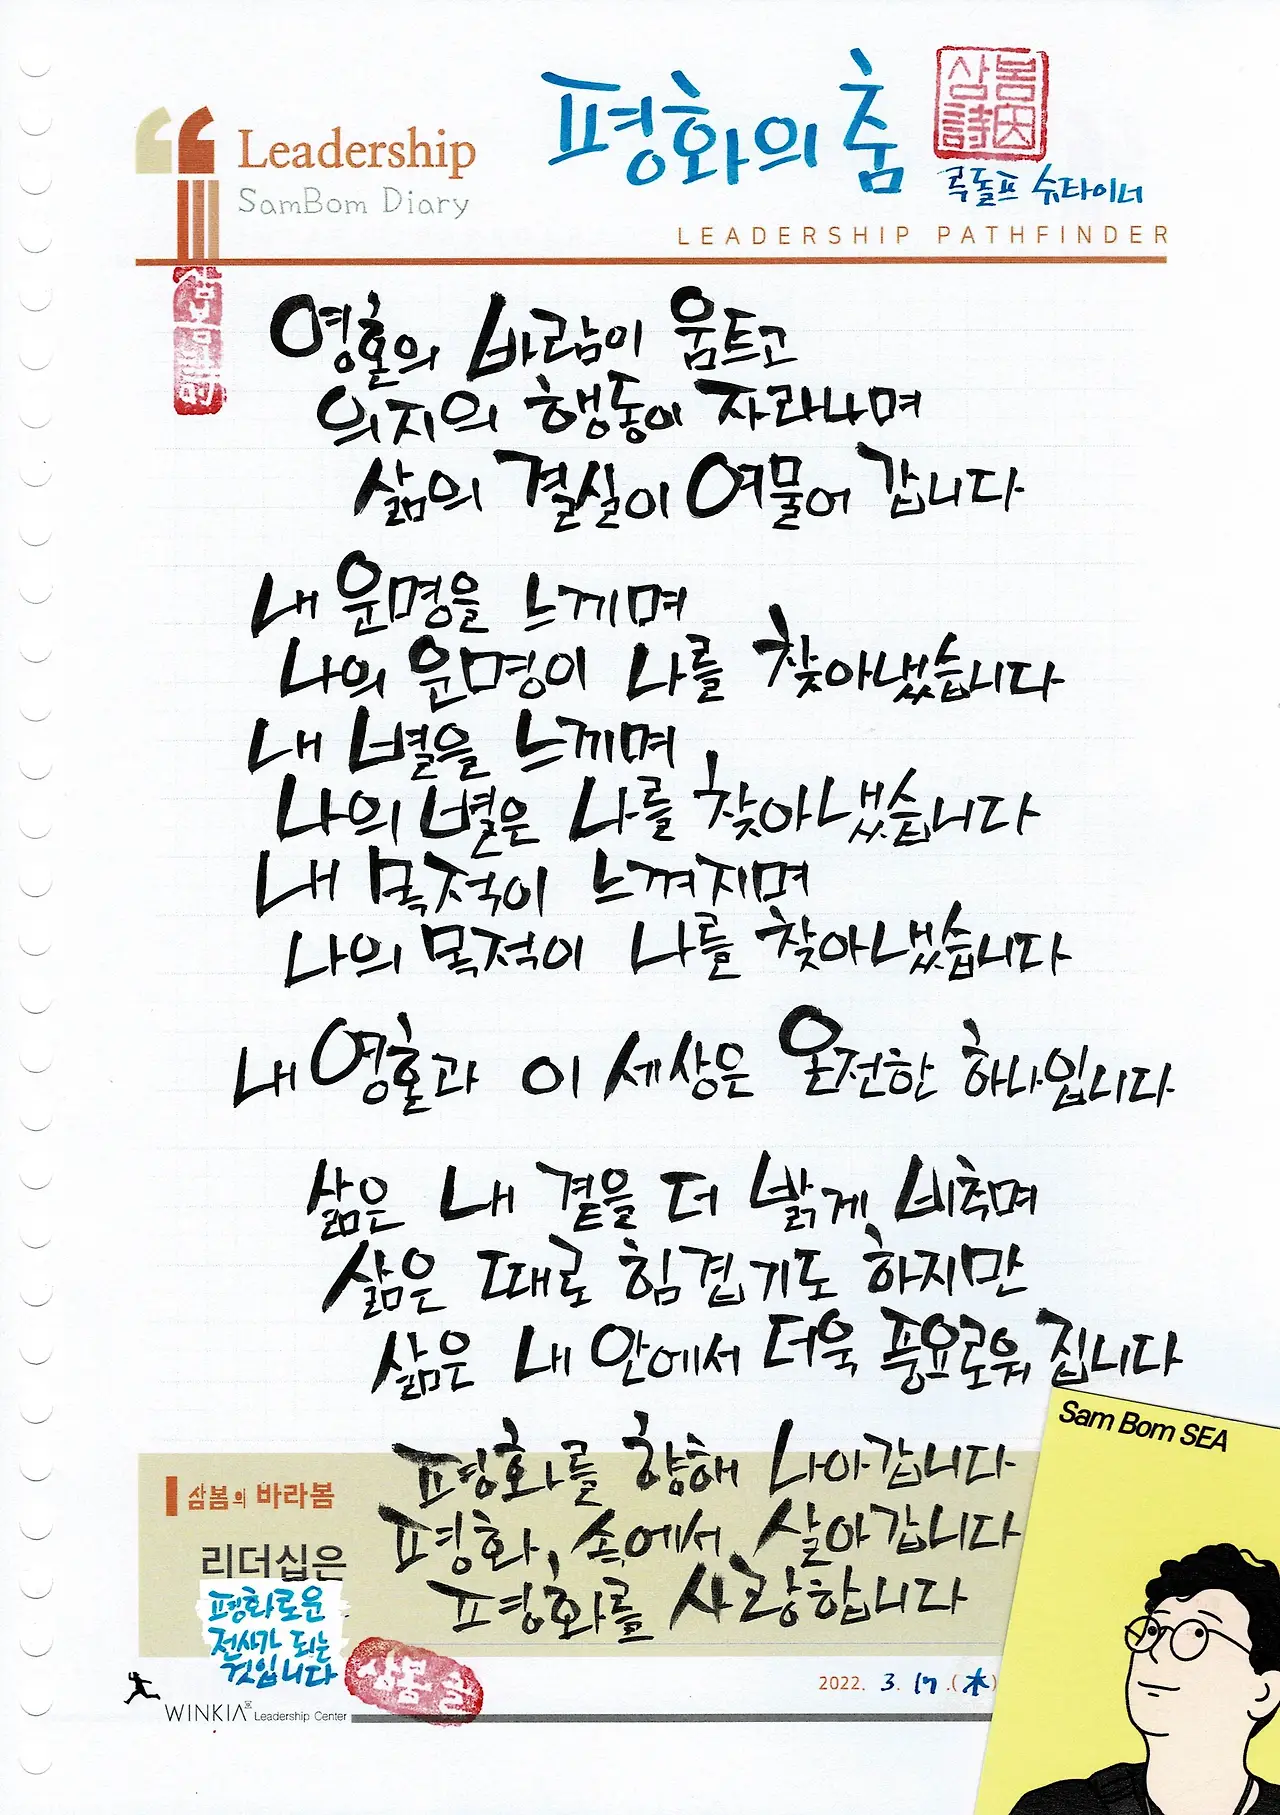 평화의 춤
삼봄
詩因
Leadership
SamBom Diary
루돌프 슈타이너
LEADERSHIP PATHFINDER
삼봄詩
영혼의 바람이 움트고
의지의 행동이 자라나며
삶의 결실이 여물어 갑니다
내 운명을 느끼며
나의 운명이 나를 찾아냈습니다
내 별을 느끼며
나의 별은 나를 찾아냈습니다
내 목적이 느껴지며
나의 목적이 나를 찾아냈습니다
내 영혼과 이 세상은 온전한 하나입니다
삶은 내 곁을 더 밝게 비추며
삶은 때로 힘겹기도 하지만
삶은 내 안에서 더욱 풍요로워 집니다
평화를 향해 나아갑니다
평화 속에서 살아갑니다
평화를 사랑합니다
Sam Bom SEA
삼봄의 바라봄
리더십은
평화로운
전사가 되는
것입니다
삼봄 글
2022. 3. 17.(木)
WINKIA Leadership Center